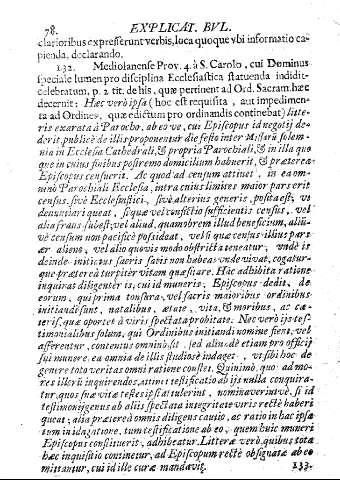 78. EXPLICAT. BVL.
clarioribus expresserunt verbis, luca quoque vbi informatio ca-
pienda, declarando.
132. Mediolanense Prov. 4. à S. Carolo, cui Dominus
speciale lumen pro disciplina Ecclesiastica statuenda indidit-
celebratum, p. 2. tit. de his, quæ pertinent ad Ord. Sacram. hæc
decernit: Hæc verò ipsa (hoc est requisita, aut impedimen-
ta ad Ordines, quæ edictum pro ordinandis continebat) litte-
ris exarata à Parocho, ab eo ve, cui Episcopus id negotij de-
derit, publicè de illis proponentur die festo inter Missarũ solem-
nia in Ecclesia Cathedrali, & propria Parochiali, & in illa quo-
que in cuius finibus postremo domicilium habuerit, & præterea
Episcopus censuerit. Ac quod ad censum attinet, in ea om-
ninò Parochiali Ecclesia, intra cuius limites maior pars erit
census, sivè Ecclesiastici, sivè alterius generis, posita est, vt
denuntiari queat, si quæ vel confictio sufficientis census, vel
alia fraus subest; vel aliud, quamobrem illud beneficium, aliu-
vè censum non pacificè possideat, vel si quæ census illius pars
ær alieno, vel alio quovis modo obstricta teneatur, vnde is
deinde initiatus sacris satis non habeas vnde vivat, cogatur-
que præter ea turpiter vitam quæritare. Hac adhibita ratione
inquirat diligenter is, cui id muneris, Episcopus dedit, de
eorum, qui prima tonsura, vel sacris maioribus ordinibus
initiandi sunt, natalibus, ætate, vita, & moribus, ac cæ-
teris, quæ oportet à viris spectata probitate. Nec verò is tes-
timonialibus solum, qui Ordinibus initiandi nomine fient, vel
afferentur, contentus omninò sit, sed alimde etiam pro officij
sui munere, ea omnia de illis studiosè indaget, vt sibi hoc de
genere toto veritas omni ratione constet. Quinimò, quo ad mo-
res illorũ inquirendos, attinet testificatio ab ijs nulla conquira-
tur, quos suæ vitæ testes ipsi attulerint, nominaverint vè. Si id
testimonij genus ab alijs spectata integritate viris rectè haberi
queat; alia præterea omnis diligens cautio, ac ratio in hac ipsa
tum in idagatione, tum testificatione ab eo, quem huic muneri
Episcopus constituerit, adhibeatur. Litteræ verò, quibus tota
hæc inquisitio continetur, ad Episcopum rectè obsignatæ ab eo
mittantur, cui id ille curæ mandavit. 133-